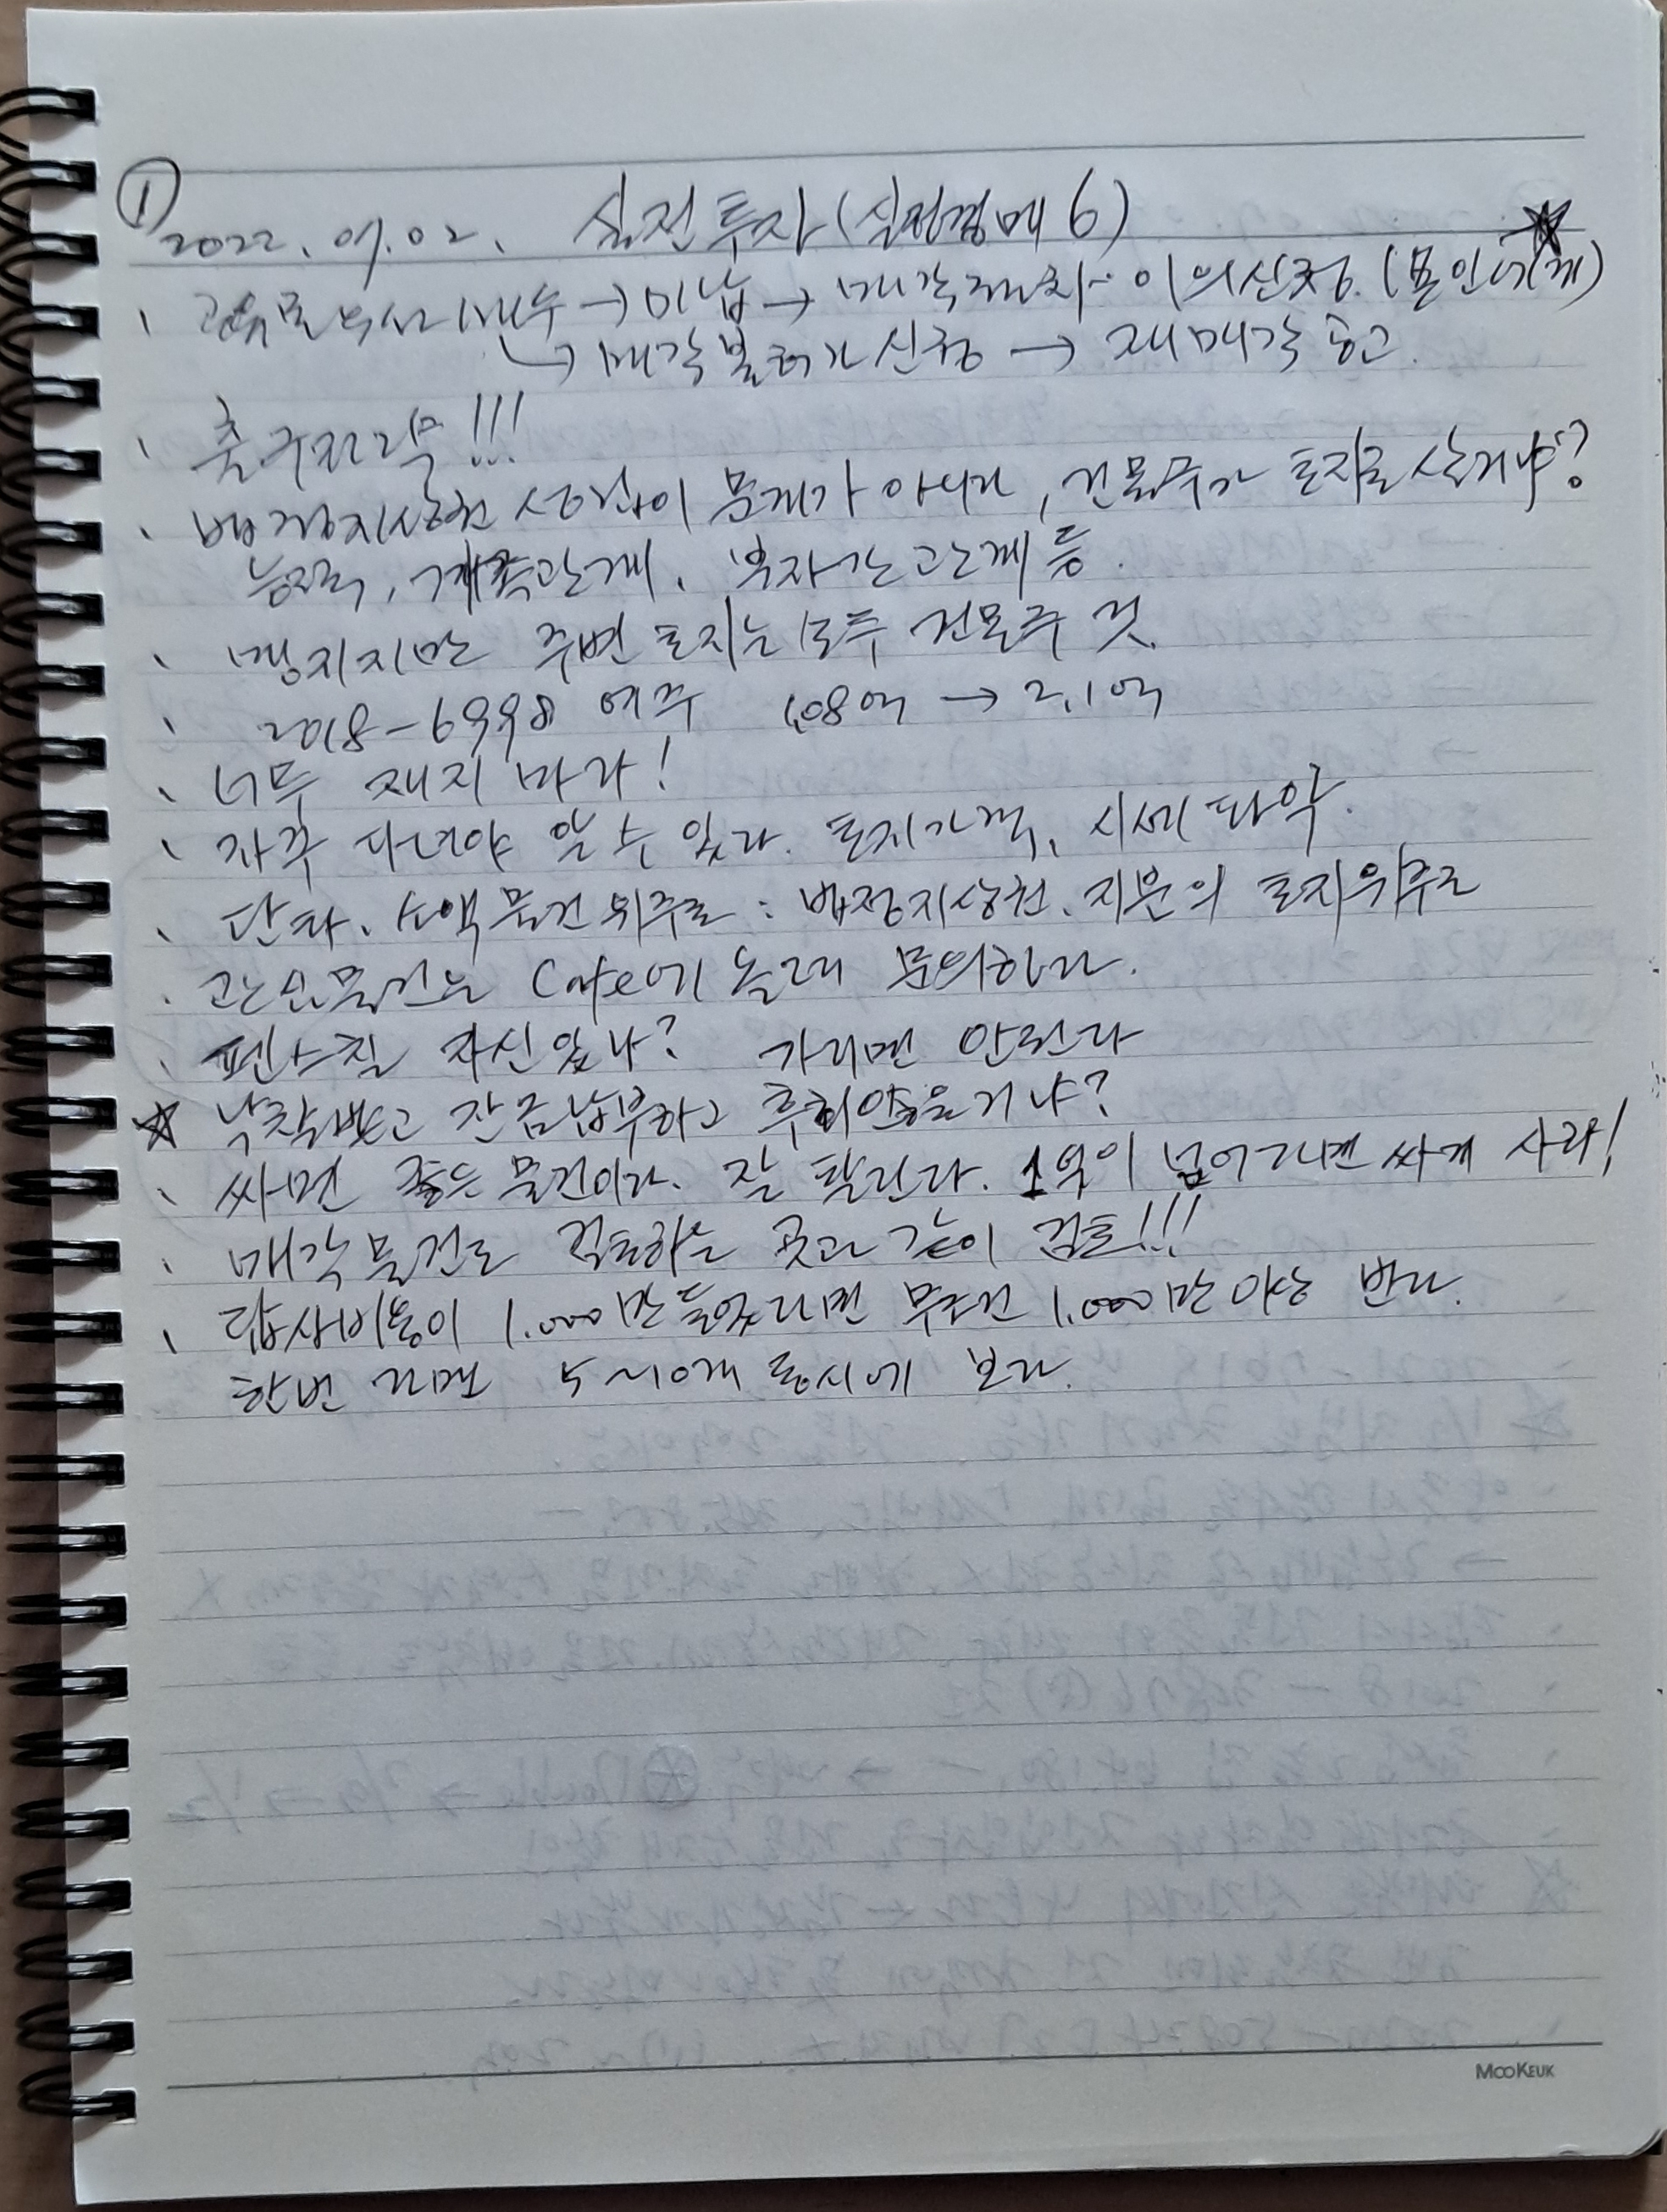 ①
2022. 09. 02. 실전투자(실전경매 6)
· 매수 → 미납 → 매각 이의신청. (본인에게)
↳ 매각불허가신청 → 재매각 공고.
· 출구전략!!!
· 법정지상권 성립이 문제가 아니다, 건물주가 토지를 살거냐?
능력, 가족관계, 부자간관계 등.
· 맹지지만 주변 토지는 모두 건물주 것.
· 2018-6998 여주 1.08억 → 2.1억
· 너무 재지 마라!
· 자주 다녀야 알 수 있다. 토지가격, 시세 파악.
· 단타, 소액 물건 위주로 : 법정지상권, 지분의 토지위주로
· 관심물건은 Cafe에 올려 문의하라.
· 펜스칠 자신있나? 가리면 안된다
☆ 낙찰받고 잔금납부하고 후회않을거냐?
· 싸면 좋은 물건이다. 잘 팔린다. 1억이 넘어가면 싸게 사라!
· 매각물건도 검토하는 곳과 같이 검토!!!
· 답사비용이 1.000만 들었다면 무조건 1.000만 이상 번다.
한번 가면 5~10개 동시에 보라.
MOOKEUK